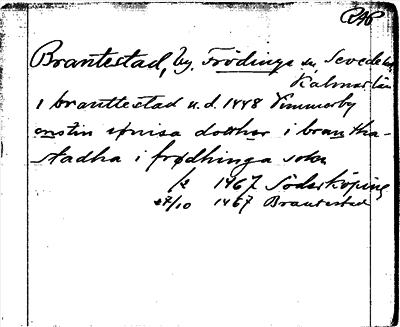 Brantestad, by, Frödinge sn, Sevede hd,
Kalmar län
i branttestad u.d. 1448 Vimmerby
cristin iønisa dotthor i brantha-
stadha i frødhinga sokn
1467 Söderköping
27/10 1467 Brantestad